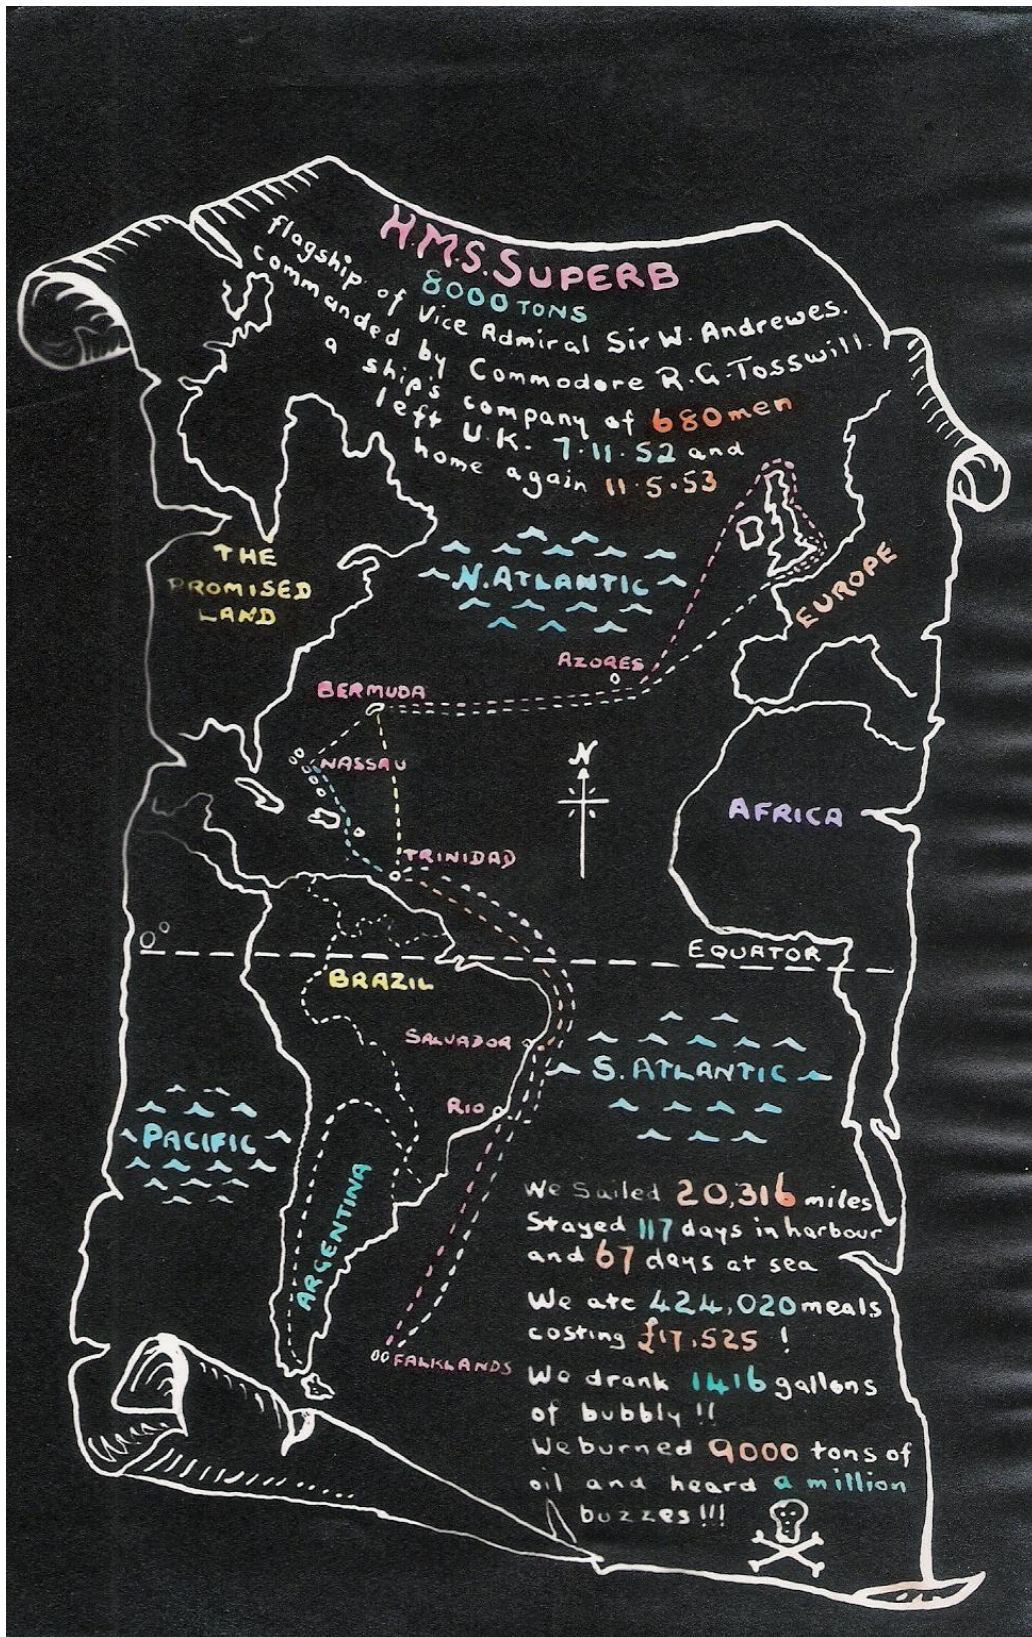 H.M.S. SUPERB
8000 TONS
flagship of Vice Admiral Sir W. Andrewes.
commanded by Commodore R.G. Tosswill.
a ship's company of 680 men
left U.K. 7.11.52 and
home again 11.5.53
THE
PROMISED
LAND
N. ATLANTIC
EUROPE
AZORES
BERMUDA
NASSAU
N
AFRICA
TRINIDAD
EQUATOR
BRAZIL
SALVADOR
S. ATLANTIC
RIO
PACIFIC
ARGENTINA
We Sailed 20,316 miles
Stayed 117 days in harbour
and 67 days at sea
We ate 424,020 meals
costing £17,525 !
FALKLANDS
We drank 1416 gallons
of bubbly !!
We burned 9000 tons of
oil and heard a million
buzzes !!!